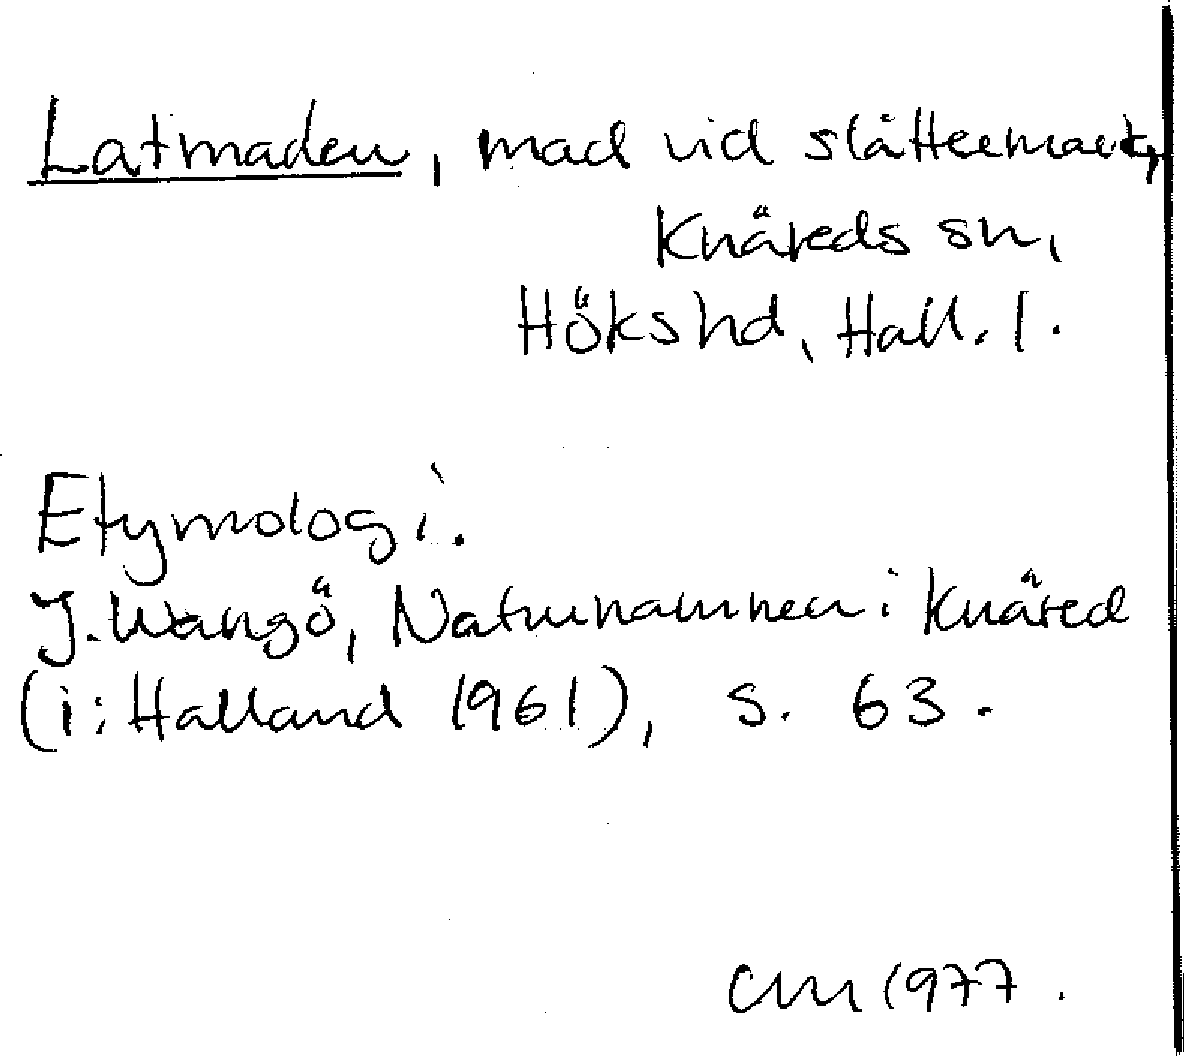 Latmaden, mad vid slåttermark,
Knäreds sn,
Höks hd, Hall. l.
Etymologi.
J. Wangö, Naturnamnen i Knäred
(i: Halland 1961), s. 63.
CM 1977.